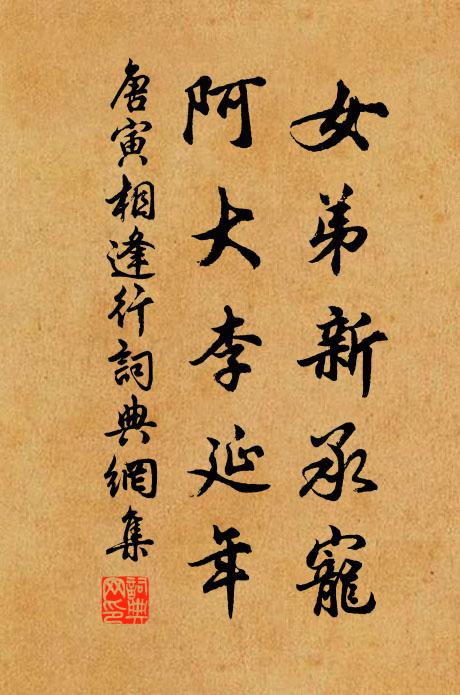 女弟新承寵
阿大李延年
唐寅相逢行詞典網集
詞典
网印